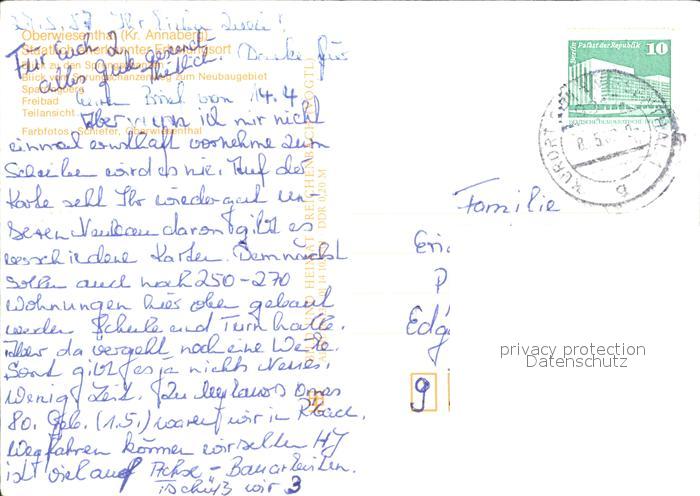 Ihr Lieben Zwei!
Oberwiesenthal (Kr. Annaberg)
Staatlich anerkannter Erholungsort
Für Euch 2
alles Gute gesundheitlich.
Danke für
Blick zu den Sprungschanzen
Blick vom Sprungschanzenweg zum Neubaugebiet
Sparingberg
Freibad
Teilansicht
Euren Brief vom 14.4.
Aber wenn ich mir nicht
Farbfotos: Schiefer, Oberwiesenthal
einmal ernsthaft vornehme zum
Schreiben wird es nie. Auf der
Karte seht Ihr wiedergut un-
seren Neubau davon gibt es
verschiedene Karten. Demnächst
sollen auch noch 250-270
Wohnungen hier oben gebaut
werden Schule und Turnhalle.
Aber da vergeht noch eine Weile.
Sonst gibt es ja nichts Neues.
Wenig Zeit. Zu Omas
80. Geb. (1.5.) waren wir in
Wegfahren können wir selten HJ
ist viel auf Achse - Bauarbeiten.
Tschüß wir 3
BILD UND HEIMAT REICHENBACH (VOGTL)
DDR 0,20 M
Palast der Republik
Berlin
10
KURORT
Familie
Eri
P
Edg
9
privacy protection
Datenschutz